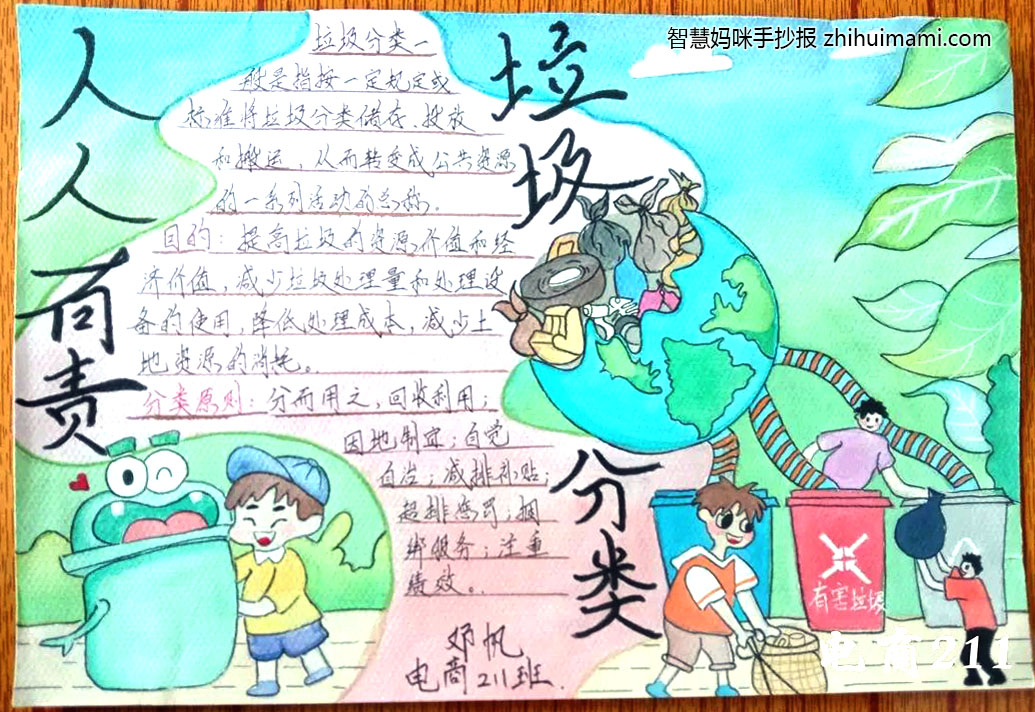 智慧妈咪手抄报 zhihuimami.com
人人有责
垃圾
分类
垃圾分类一
般是指按一定规定或
标准将垃圾分类储存、投放
和搬运，从而转变成公共资源
的一系列活动的总称。
目的：提高垃圾的资源价值和经
济价值，减少垃圾处理量和处理设
备的使用，降低处理成本，减少土
地资源的消耗。
分类原则：分而用之，回收利用；
因地制宜；自觉
自治；减排补贴；
超排惩罚；捆
绑服务；注重
绩效。
邓帆
电商211班.
有害垃圾
电商211